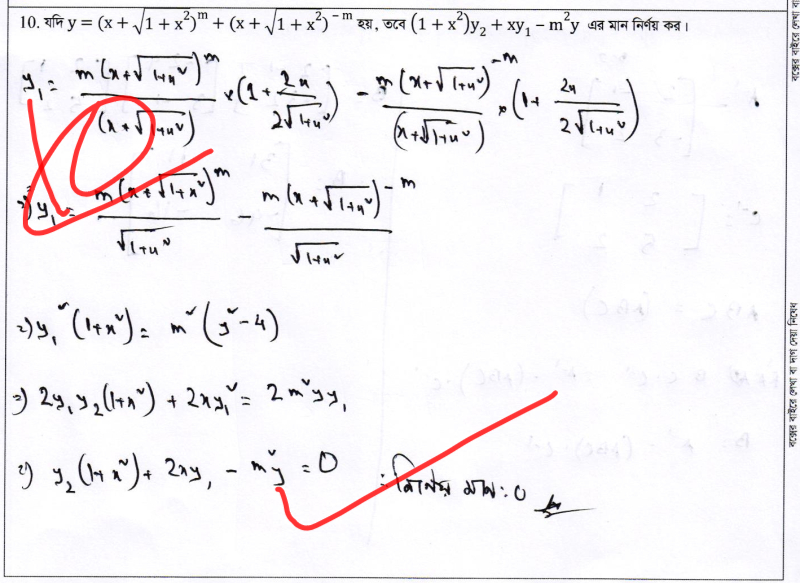 10. যদি y = (x + √1 + x²)ᵐ + (x + √1 + x²)⁻ᵐ হয়, তবে (1 + x²)y₂ + xy₁ − m²y এর মান নির্ণয় কর।
y₁ = m(x+√1+x²)ᵐ / (x+√1+x²) × (1 + 2x / 2√1+x²) − m(x+√1+x²)⁻ᵐ / (x+√1+x²) × (1+ 2x / 2√1+x²)
⇒) y₁ = m(x+√1+x²)ᵐ / √1+x² − m(x+√1+x²)⁻ᵐ / √1+x²
⇒) y₁²(1+x²) = m²(y²−4)
⇒) 2y₁y₂(1+x²) + 2xy₁² = 2m²yy₁
⇒) y₂(1+x²) + 2xy₁ − m²y = 0 ∴ নির্ণেয় মান: 0
10
বক্সের বাইরে লেখা বা দাগ দেয়া নিষেধ